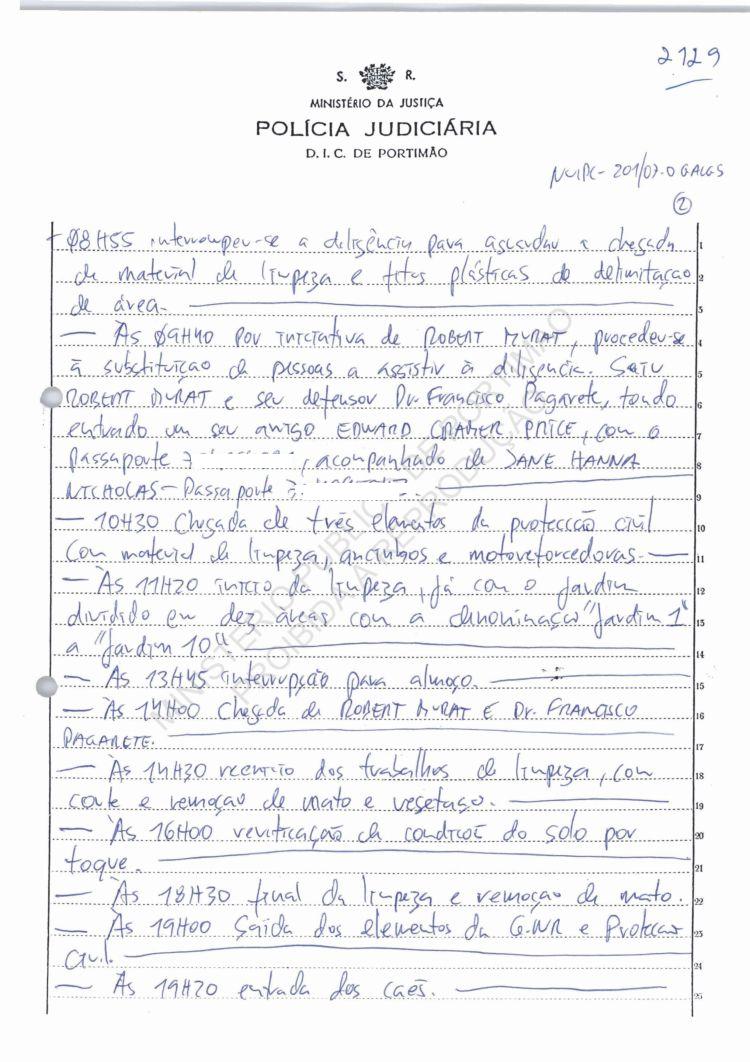 2129
S. R.
MINISTÉRIO DA JUSTIÇA
POLÍCIA JUDICIÁRIA
D. I. C. DE PORTIMÃO
NUIPC- 201/07.0 GALGS
2
08H55 interrompeu-se a diligência para aguardar a chegada 1
de material de limpeza e fitas plásticas de delimitação 2
de área. 3
— Às 09H40 por iniciativa de ROBERT MURAT, procedeu-se 4
à substituição de pessoas a assistir à diligência. Saiu 5
ROBERT MURAT e seu defensor Dr. Francisco Pagarete, tendo 6
entrado um seu amigo EDWARD CRAMER PRICE, com o 7
Passaporte, acompanhado de JANE HANNA 8
NICHOLAS - Passaporte 9
— 10H30 Chegada de três elementos da protecção civil 10
com material de limpeza, ancinhos e motoreforcedoras. — 11
— Às 11H20 início da limpeza, já com o jardim 12
dividido em dez áreas com a denominação "Jardim 1" 13
a "Jardim 10". 14
— Às 13H45 interrupção para almoço. 15
— Às 14H00 Chegada de ROBERT MURAT E Dr. FRANCISCO 16
PAGARETE. 17
— Às 14H30 reenício dos trabalhos de limpeza, com 18
corte e remoção de mato e vegetaço. 19
— Às 16H00 verificação da condições do solo por 20
toque. 21
— Às 18H30 final da limpeza e remoção de mato. 22
— Às 19H00 Saída dos elementos da G.N.R e Protecção 23
Civil. 24
— Às 19H20 entrada dos cães. 25
MINISTÉRIO PÚBLICO DE PORTIMÃO
PROIBIDA A REPRODUÇÃO